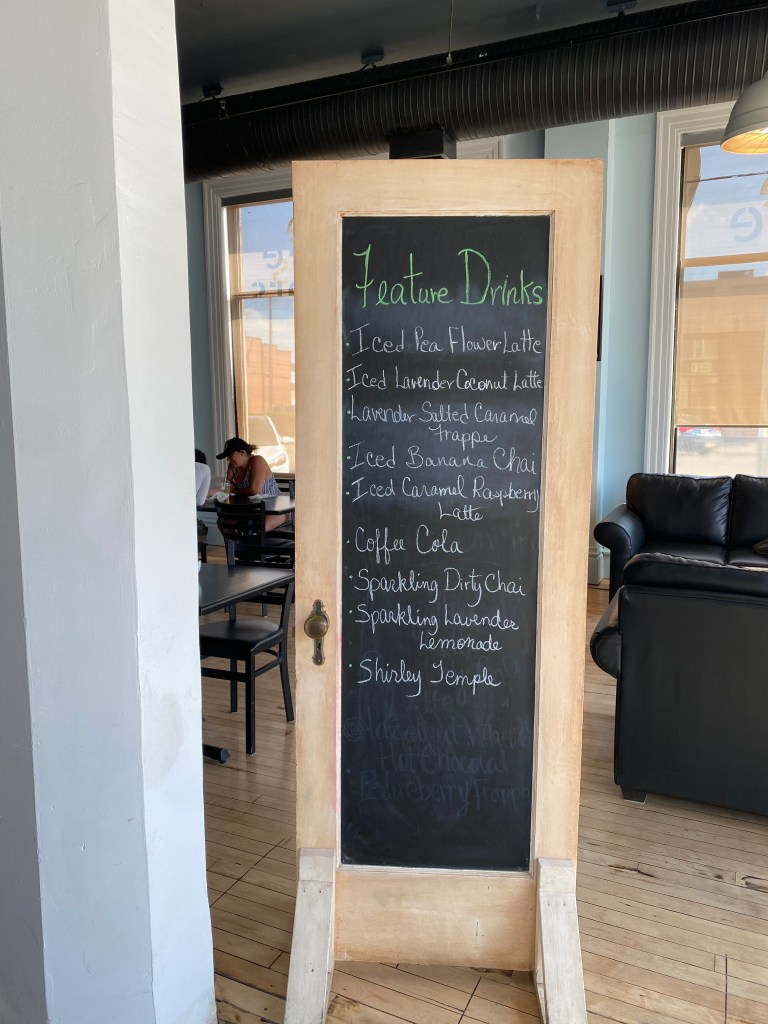 Feature Drinks
· Iced Pea Flower Latte
· Iced Lavender Coconut Latte
· Lavender Salted Caramel
Frappe
· Iced Banana Chai
· Iced Caramel Raspberry
Latte
· Coffee Cola
· Sparkling Dirty Chai
· Sparkling Lavender
Lemonade
· Shirley Temple
Hot Chocolat
Blueberry Frappe
e